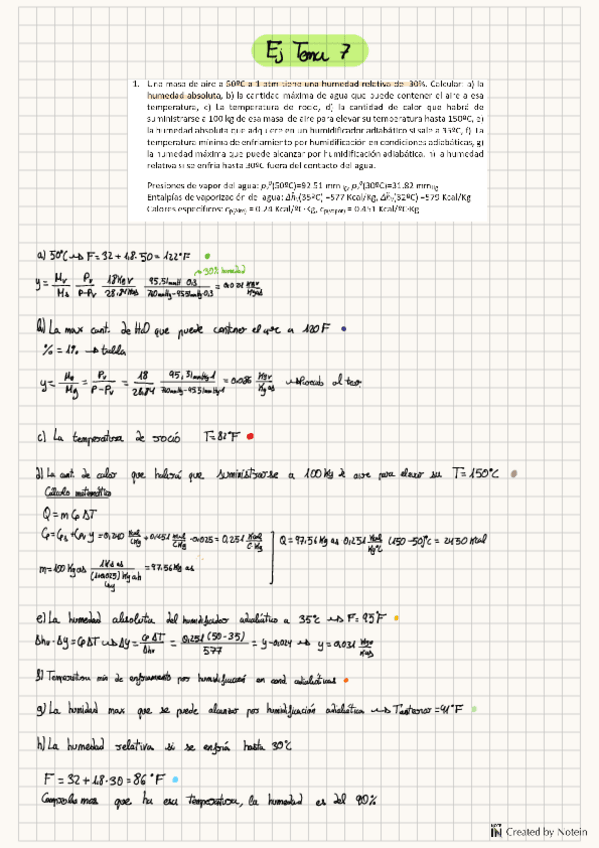 Ej Tema 7
1. Una masa de aire a 50ºC a 1 atm tiene una humedad relativa del 30%. Calcular: a) la
humedad absoluta, b) la cantidad máxima de agua que puede contener el aire a esa
temperatura, c) La temperatura de rocío, d) la cantidad de calor que habrá de
suministrarse a 100 kg de esa masa de aire para elevar su temperatura hasta 150ºC, e)
la humedad absoluta que adquiere en un humidificador adiabático si sale a 35ºC, f) La
temperatura mínima de enfriamiento por humidificación en condiciones adiabáticas, g)
la humedad máxima que puede alcanzar por humidificación adiabática, h) la humedad
relativa si se enfría hasta 30ºC fuera del contacto del agua.
Presiones de vapor del agua: pᵥ⁰(50ºC)=92.51 mmHg, pᵥ⁰(30ºC)=31.82 mmHg
Entalpías de vaporización de agua: Δĥᵥ(35ºC) =577 Kcal/Kg, Δĥᵥ(32ºC) =579 Kcal/Kg
Calores específicos: = 0.24 Kcal/ºC·Kg, = 0.451 Kcal/ºC·Kg
a) 50ºC → F = 32 + 1,8·50 = 122ºF
→ 30% humedad
b) La max cant. de H2O que puede contener el aire a 120F
% = 1% → tabla
c) La temperatura de roció T=82ºF
d) La cant. de calor que habrá que suministrarse a 100 kg de aire para elevar su T=150ºC
Cálculo matemático
Q = m Cp ΔT
Q = 97,56 kg as 0,251 (150-50)ºC = 2450 kcal
= 97,56 kg as
e) La humedad absoluta del humidificador adiabático a 35ºC → F=95ºF
Δhv · Δy = Cp ΔT → Δy = Cp ΔT / Δhv = 0,251 (50-35) / 577 = y-0,024 → y = 0,031
f) Temperatura min de enfriamiento por humidificación en cond. adiabáticas
g) La humidad max que se puede alcanzar por humidificación adiabática →
h) La humedad relativa si se enfria hasta 30ºC
F = 32 + 1,8·30 = 86ºF
Comprobamos que ha esa temperatura, la humedad es del 90%
IN Created by Notein